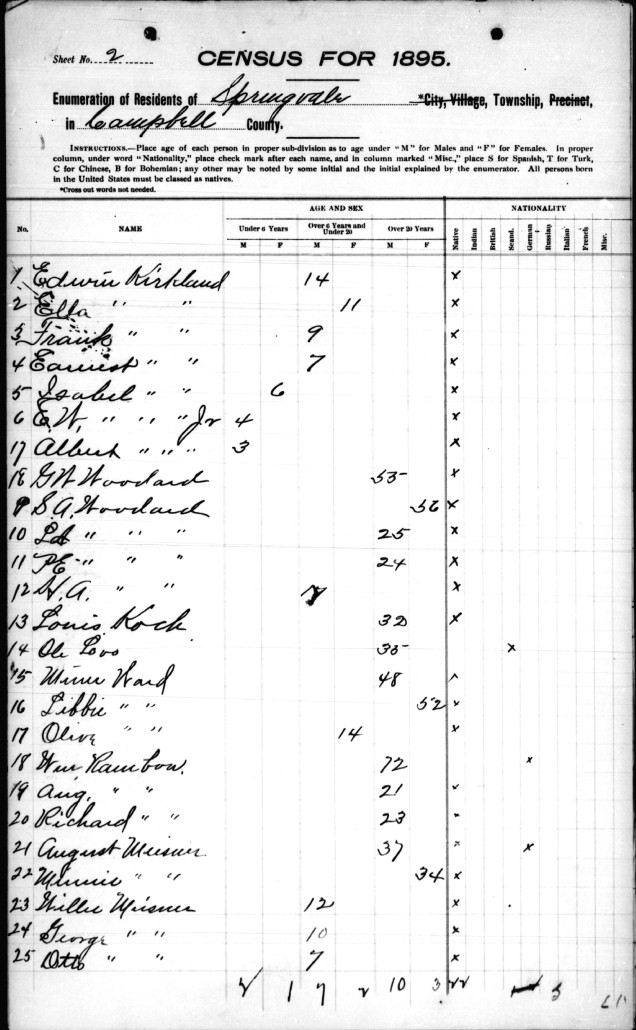 Sheet No. 2
CENSUS FOR 1895.
Enumeration of Residents of Springvale *City, Village, Township, Precinct,
in Campbell County.
INSTRUCTIONS.—Place age of each person in proper sub-division as to age under "M" for Males and "F" for Females. In proper
column, under word "Nationality," place check mark after each name, and in column marked "Misc.," place S for Spanish, T for Turk,
C for Chinese, B for Bohemian; any other may be noted by some initial and the initial explained by the enumerator. All persons born
in the United States must be classed as natives.
*Cross out words not needed.
AGE AND SEX NATIONALITY
No. NAME Under 6 Years Over 6 Years and Under 20 Over 20 Years Native Indian British Scand. German Russian Italian French Misc.
M F M F M F
1 Edwin Kirkland 14 x
2 Ella " " 11 x
3 Frank " " 9 x
4 Earnest " " 7 x
5 Isabel " " 6 x
6 E.W. " " " Jr 4 x
17 Albert " " " 3 x
18 G W Woodard 53 x
9 S.A. Woodard 56 x
10 " " " 25 x
11 P.E. " " " 24 x
12 H.A. " " x
13 Louis Koch 32 x
14 Ole 35 x
15 Miner Ward 48
16 Libbie " " 52 x
17 Olive " " 14 x
18 Wm Rambow. 72 x
19 Aug. " " 21
20 Richard " " 23
21 August Meisner 37 x
22 Minnie " " 34 x
23 Willie Meisner 12 x
24 George " " 10 x
25 Otto " " 7 x
1 7 2 10 3